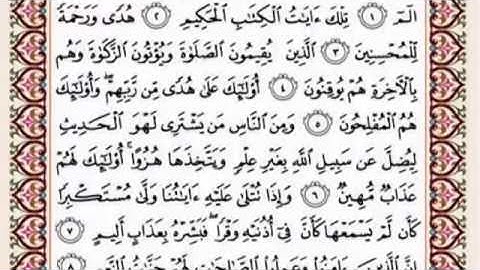 الٓمٓ ١ تِلْكَ ءَايَٰتُ ٱلْكِتَٰبِ ٱلْحَكِيمِ ٢ هُدًى وَرَحْمَةً
لِّلْمُحْسِنِينَ ٣ ٱلَّذِينَ يُقِيمُونَ ٱلصَّلَوٰةَ وَيُؤْتُونَ ٱلزَّكَوٰةَ وَهُم
بِٱلْءَاخِرَةِ هُمْ يُوقِنُونَ ٤ أُو۟لَٰٓئِكَ عَلَىٰ هُدًى مِّن رَّبِّهِمْ ۖ وَأُو۟لَٰٓئِكَ
هُمُ ٱلْمُفْلِحُونَ ٥ وَمِنَ ٱلنَّاسِ مَن يَشْتَرِى لَهْوَ ٱلْحَدِيثِ
لِيُضِلَّ عَن سَبِيلِ ٱللَّهِ بِغَيْرِ عِلْمٍ وَيَتَّخِذَهَا هُزُوًا ۚ أُو۟لَٰٓئِكَ لَهُمْ
عَذَابٌ مُّهِينٌ ٦ وَإِذَا تُتْلَىٰ عَلَيْهِ ءَايَٰتُنَا وَلَّىٰ مُسْتَكْبِرًا
كَأَن لَّمْ يَسْمَعْهَا كَأَنَّ فِىٓ أُذُنَيْهِ وَقْرًا ۖ فَبَشِّرْهُ بِعَذَابٍ أَلِيمٍ ٧
إِنَّ ٱلَّذِينَ ءَامَنُوا۟ وَعَمِلُوا۟ ٱلصَّٰلِحَٰتِ لَهُمْ جَنَّٰتُ ٱلنَّعِيمِ ٨